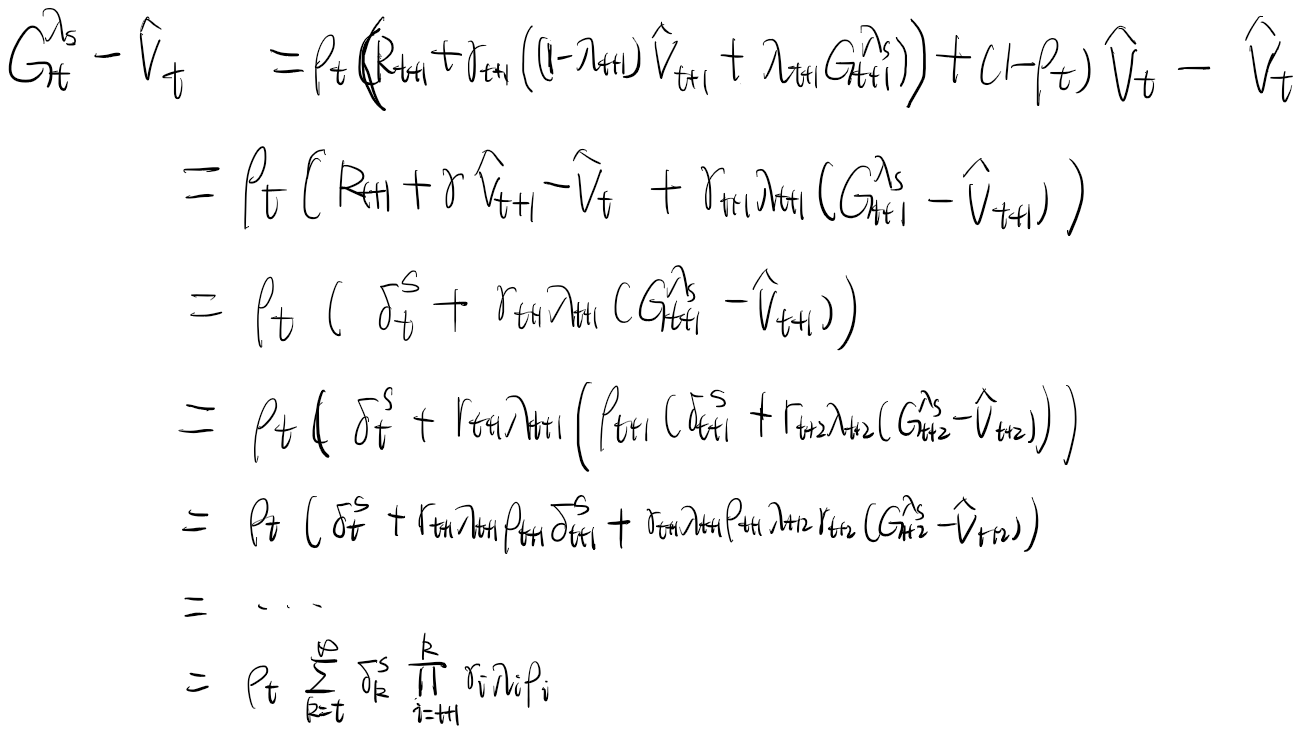 G_t^{λs} - V̂_t = ρ_t (R_{t+1} + γ_{t+1} ((1-λ_{t+1}) V̂_{t+1} + λ_{t+1} G_{t+1}^{λs})) + (1-ρ_t) V̂_t - V̂_t
= ρ_t (R_{t+1} + γ V̂_{t+1} - V̂_t + γ_{t+1} λ_{t+1} (G_{t+1}^{λs} - V̂_{t+1}))
= ρ_t (δ_t^s + γ_{t+1} λ_{t+1} (G_{t+1}^{λs} - V̂_{t+1}))
= ρ_t (δ_t^s + γ_{t+1} λ_{t+1} (ρ_{t+1} (δ_{t+1}^s + γ_{t+2} λ_{t+2} (G_{t+2}^{λs} - V̂_{t+2})))
= ρ_t (δ_t^s + γ_{t+1} λ_{t+1} ρ_{t+1} δ_{t+1}^s + γ_{t+1} λ_{t+1} ρ_{t+1} λ_{t+2} γ_{t+2} (G_{t+2}^{λs} - V̂_{t+2}))
= ...
= ρ_t ∑_{k=t}^{∞} δ_k^s ∏_{i=t+1}^{k} γ_i λ_i ρ_i